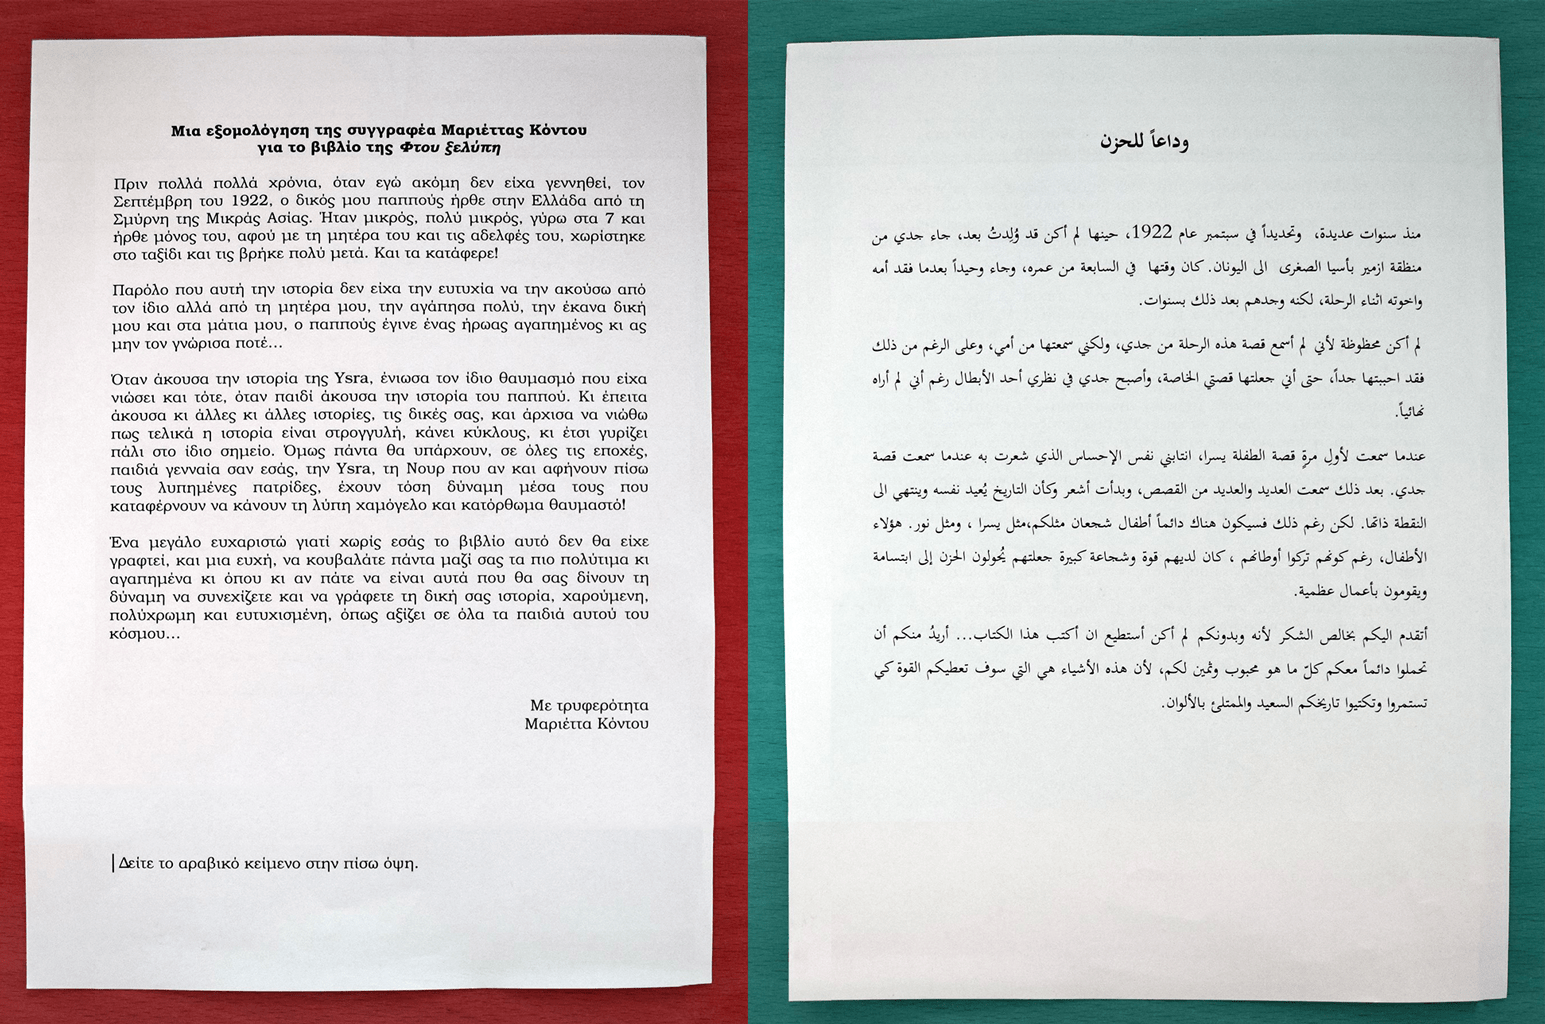 Μια εξομολόγηση της συγγραφέα Μαριέττας Κόντου
για το βιβλίο της Φτου ξελύπη
Πριν πολλά πολλά χρόνια, όταν εγώ ακόμη δεν είχα γεννηθεί, τον
Σεπτέμβρη του 1922, ο δικός μου παππούς ήρθε στην Ελλάδα από τη
Σμύρνη της Μικράς Ασίας. Ήταν μικρός, πολύ μικρός, γύρω στα 7 και
ήρθε μόνος του, αφού με τη μητέρα του και τις αδελφές του, χωρίστηκε
στο ταξίδι και τις βρήκε πολύ μετά. Και τα κατάφερε!
Παρόλο που αυτή την ιστορία δεν είχα την ευτυχία να την ακούσω από
τον ίδιο αλλά από τη μητέρα μου, την αγάπησα πολύ, την έκανα δική
μου και στα μάτια μου, ο παππούς έγινε ένας ήρωας αγαπημένος κι ας
μην τον γνώρισα ποτέ...
Όταν άκουσα την ιστορία της Ysra, ένιωσα τον ίδιο θαυμασμό που είχα
νιώσει και τότε, όταν παιδί άκουσα την ιστορία του παππού. Κι έπειτα
άκουσα κι άλλες κι άλλες ιστορίες, τις δικές σας, και άρχισα να νιώθω
πως τελικά η ιστορία είναι στρογγυλή, κάνει κύκλους, κι έτσι γυρίζει
πάλι στο ίδιο σημείο. Όμως πάντα θα υπάρχουν, σε όλες τις εποχές,
παιδιά γενναία σαν εσάς, την Ysra, τη Νουρ που αν και αφήνουν πίσω
τους λυπημένες πατρίδες, έχουν τόση δύναμη μέσα τους που
καταφέρνουν να κάνουν τη λύπη χαμόγελο και κατόρθωμα θαυμαστό!
Ένα μεγάλο ευχαριστώ γιατί χωρίς εσάς το βιβλίο αυτό δεν θα είχε
γραφτεί, και μια ευχή, να κουβαλάτε πάντα μαζί σας τα πιο πολύτιμα κι
αγαπημένα κι όπου κι αν πάτε να είναι αυτά που θα σας δίνουν τη
δύναμη να συνεχίζετε και να γράφετε τη δική σας ιστορία, χαρούμενη,
πολύχρωμη και ευτυχισμένη, όπως αξίζει σε όλα τα παιδιά αυτού του
κόσμου...
Με τρυφερότητα
Μαριέττα Κόντου
Δείτε το αραβικό κείμενο στην πίσω όψη.
وداعاً للحزن
منذ سنوات عديدة، وتحديداً في سبتمبر عام 1922، حينها لم أكن قد وُلِدتُ بعد، جاء جدي من
منظقة ازمير بأسيا الصغرى الى اليونان. كان وقتها في السابعة من عمره، وجاء وحيداً بعدما فقد أمه
واخوته اثناء الرحلة، لكنه وجدهم بعد ذلك بسنوات.
لم أكن محظوظة لأني لم أسمع قصة هذه الرحلة من جدي، ولكني سمعتها من أمي، وعلى الرغم من ذلك
فقد احببتها جداً، حتى أني جعلتها قصتي الخاصة، وأصبح جدي في نظري أحد الأبطال رغم أني لم أراه
نهائياً.
عندما سمعت لأولِ مرةٍ قصة الطفلة يسرا، انتابني نفس الإحساس الذي شعرت به عندما سمعت قصة
جدي. بعد ذلك سمعت العديد والعديد من القصص، وبدأت أشعر وكأن التاريخ يُعيد نفسه وينتهي الى
النقطة ذاتها. لكن رغم ذلك فسيكون هناك دائماً أطفال شجعان مثلكم،مثل يسرا ، ومثل نور. هؤلاء
الأطفال، رغم كونهم تركوا أوطانهم ، كان لديهم قوة وشجاعة كبيرة جعلتهم يُحولون الحزن إلى ابتسامة
ويقومون بأعمال عظمية.
أتقدم اليكم بخالص الشكر لأنه وبدونكم لم أكن أستطيع ان أكتب هذا الكتاب... أريدُ منكم أن
تحملوا دائماً معكم كلّ ما هو محبوب وثمين لكم، لأن هذه الأشياء هي التي سوف تعطيكم القوة كي
تستمروا وتكتبوا تاريخكم السعيد والممتلئ بالألوان.